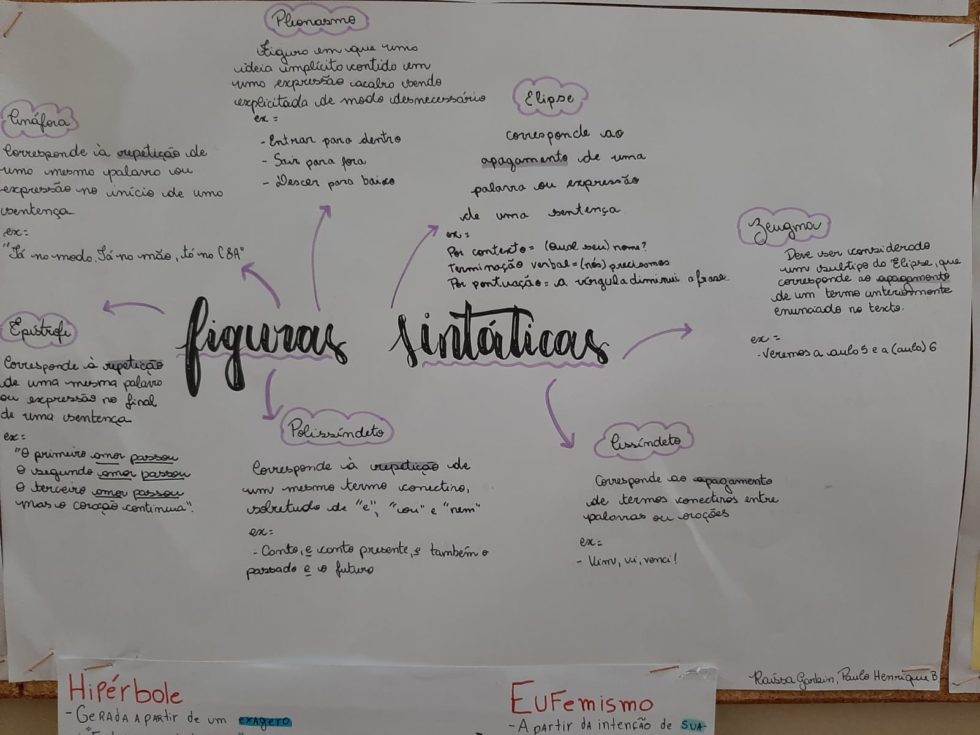 Pleonasmo
Figura em que uma
ideia implícita contida em
uma expressão acaba sendo
explicitada de modo desnecessário
ex =
- Entrar para dentro
- Sair para fora
- Descer para baixo
Elipse
corresponde ao
apagamento de uma
palavra ou expressão
de uma sentença
ex =
Por contexto = (Qual seu) nome?
Terminação verbal = (nós) precisamos
Por pontuação = a vírgula diminui a frase
Anáfora
Corresponde à repetição de
uma mesma palavra ou
expressão no início de uma
sentença
ex:
"Tá na moda, Tá na mão, tá na C&A"
Zeugma
Deve ser considerado
um subtipo do Elipse, que
corresponde ao apagamento
de um termo anteriormente
enunciado no texto.
ex =
- Veremos a aula 5 e a (aula) 6
figuras sintáticas
Epístrofe
Corresponde à repetição
de uma mesma palavra
ou expressão no final
de uma sentença
ex:
"O primeiro amor passou
O segundo amor passou
O terceiro amor passou
mas o coração continua".
Polissíndeto
Corresponde à repetição de
um mesmo termo conectivo,
sobretudo de "e", "ou" e "nem"
ex:
- Canto, e canto presente, e também o
passado e o futuro
Assíndeto
Corresponde ao apagamento
de termos conectivos entre
palavras ou orações
ex:
- Vim, vi, venci!
Raíssa Paulo Henrique B
Hipérbole
- GERADA A PARTIR DE UM EXAGERO
EuFemismo
- A PARTIR DA INTENÇÃO DE SUA-